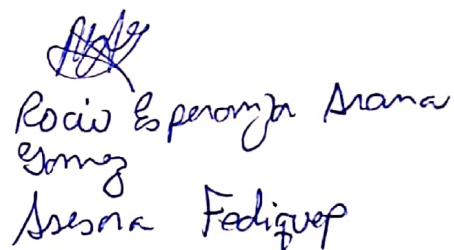 Rocio Esperanza Arana
Gomez
Asesora Fediquep